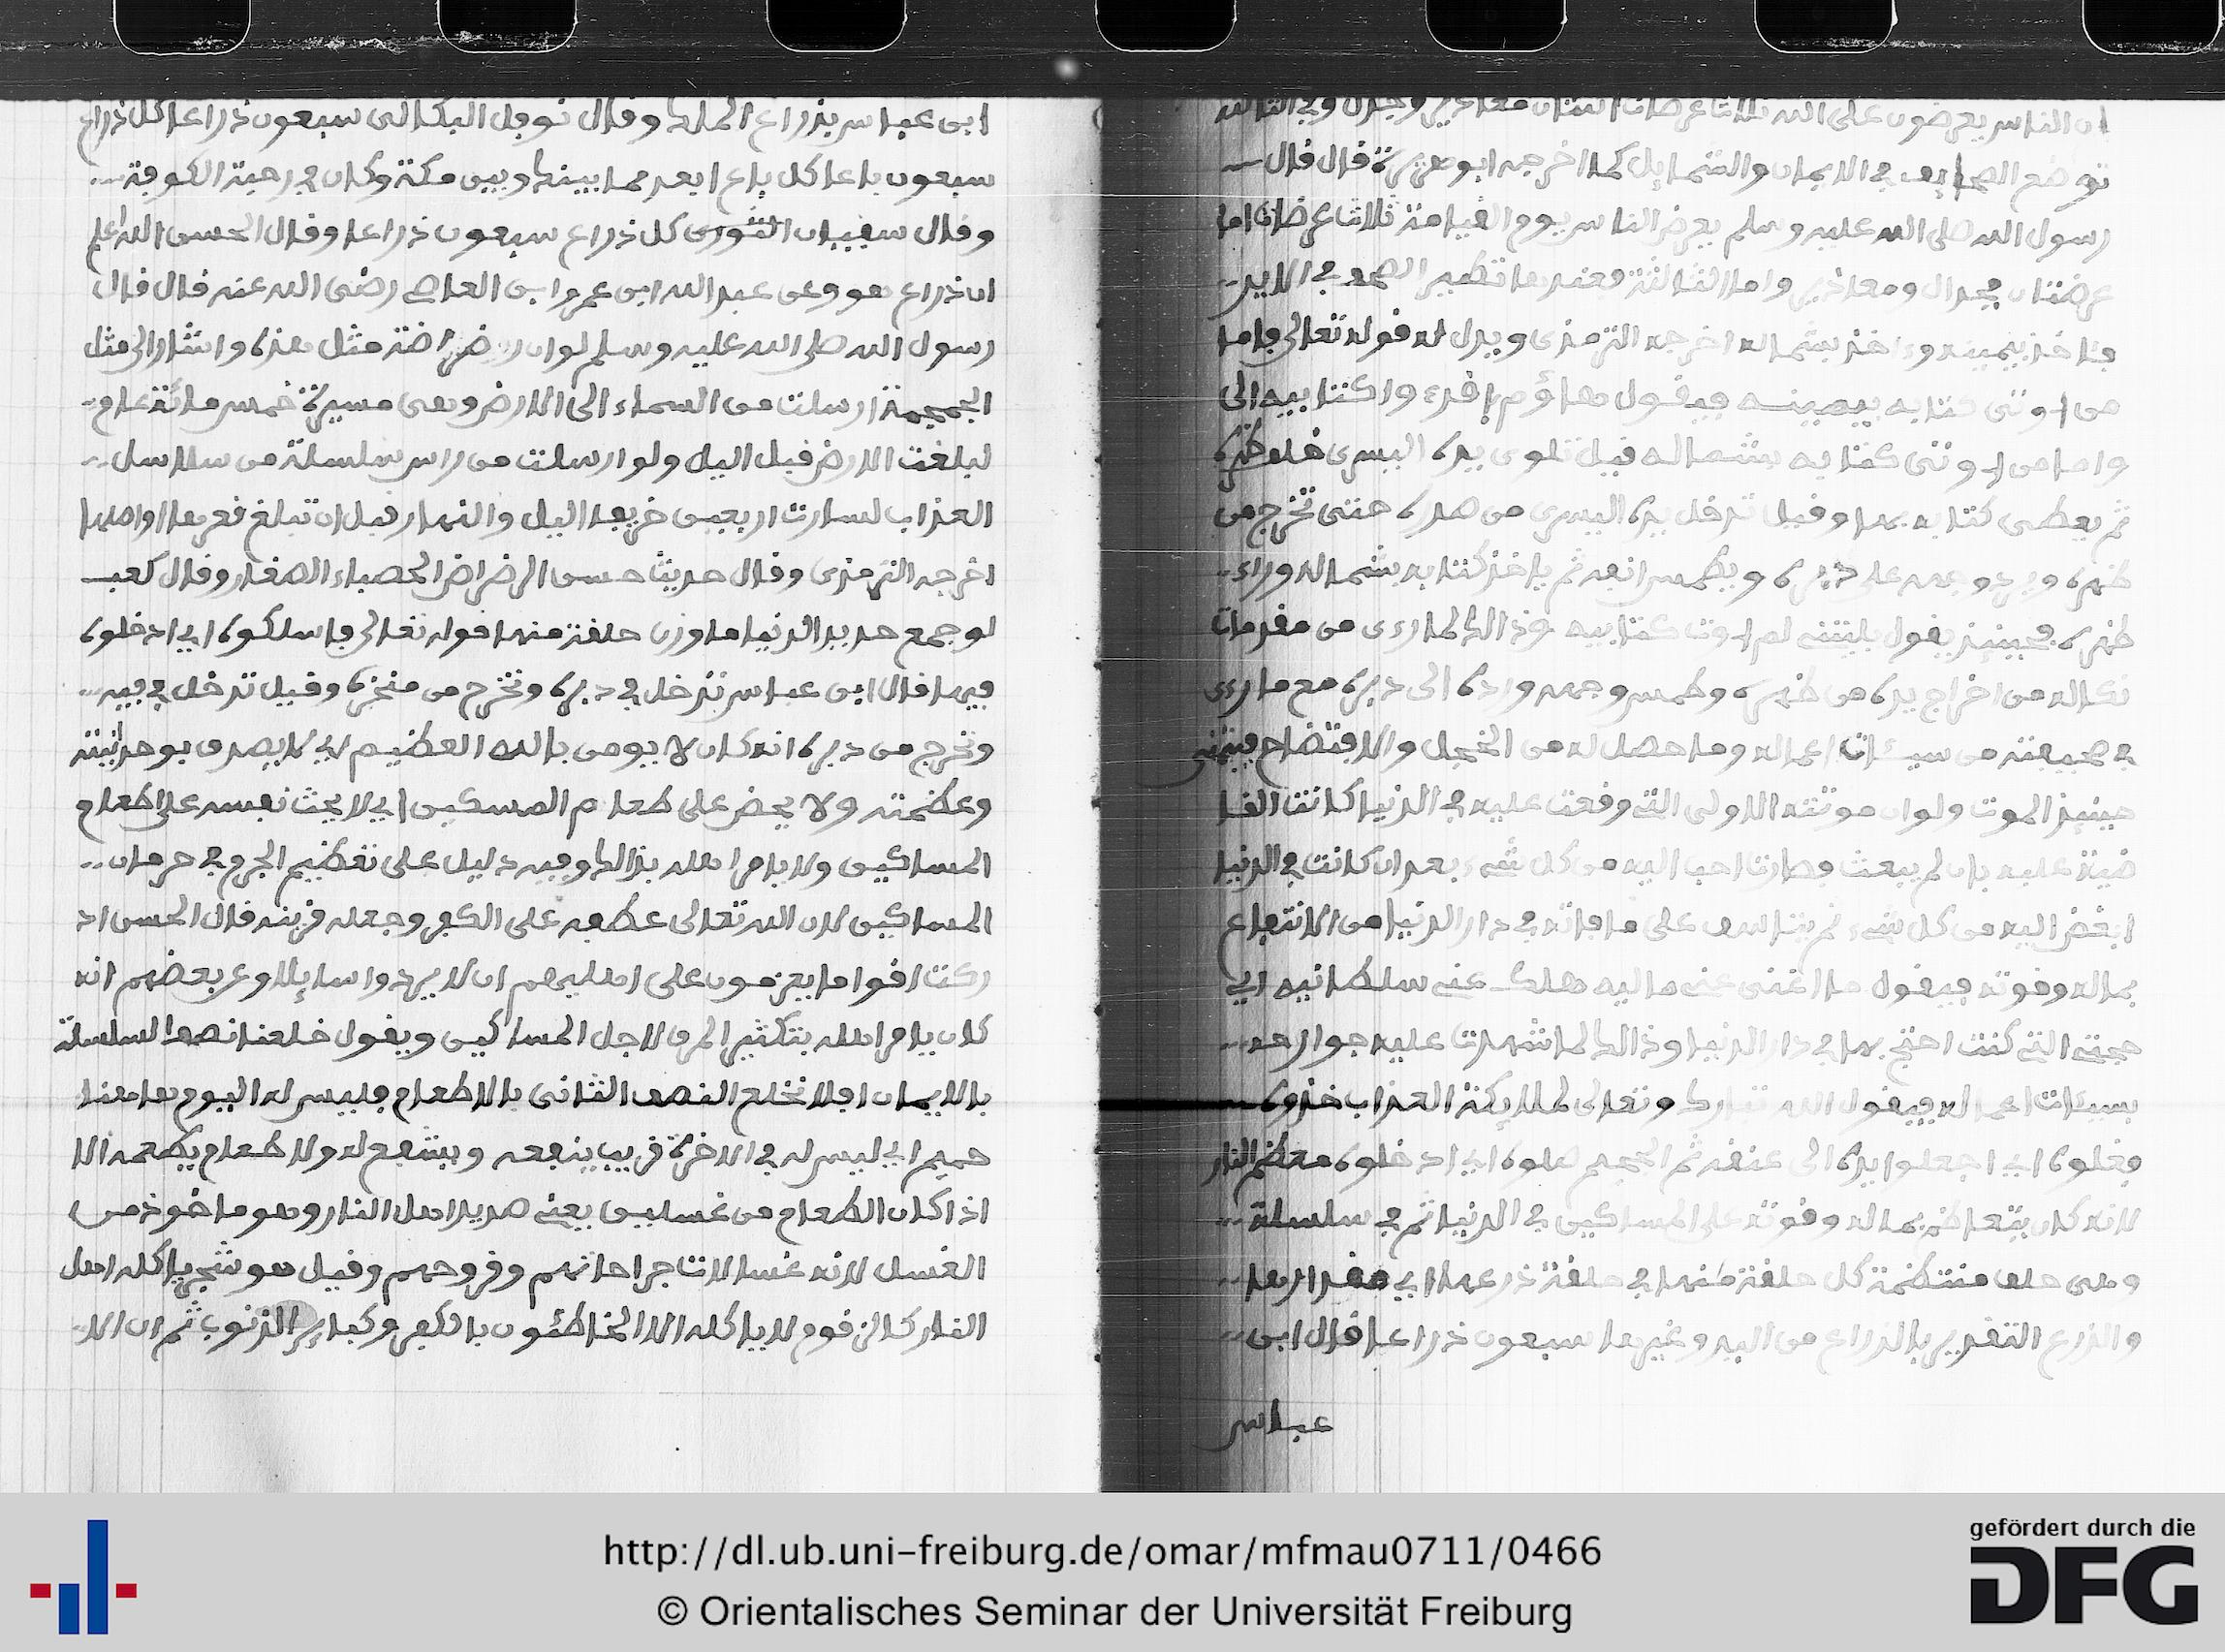 ان الناس يعرضون على الله ثلاث عرضات اثنتان معاذير وجدال وفي الثالثة
توضع الصحايف في الايمان والشمايل كما اخرجه ابو هريرة قال قال
رسول الله صلى الله عليه وسلم يعرض الناس يوم القيامة ثلاث عرضات اما
عرضتان فجدال ومعاذير واما الثالثة فعندها تطير الصحف في الايد
فئاخذ بيمينه وءاخذ بشماله اخرجه الترمذى ويدل له قوله تعالى فاما
من اوتى كتابه بيمينه فيقول هاؤم اقرءوا كتابيه الى
واما من اوتى كتابه بشماله قيل تلوى يده اليسرى خلف ظهره
ثم يعطى كتابه بها وقيل تدخل يده اليسرى من صدره حتى تخرج من
ظهره ويرد وجهه على دبره ويطمس انفه ثم ياخذ كتابه بشماله وراء
ظهره فحينيذ يقول يليتنى لم اوت كتابيه وذالك لما رءى من مقدمات
نكاله من اخراج يده من ظهره وطمس وجهه ورده الى دبره مع ما رءى
في صحيفته من سيئات اعماله وما حصل له من الخجل والافتضاح فيتمنى
حينيذ الموت ولوان موتته الاولى التى وقعت عليه في الدنيا كانت القا
ضية عليه بان لم يبعث فصارت احب اليه من كل شىء بعد ان كانت في الدنيا
ابغض اليه من كل شىء ثم يتاسف على ما فاته في دار الدنيا من الانتفاع
بماله وقوته فيقول ما اغنى عنى ماليه هلك عنى سلطانيه اي
حجتى التى كنت احتج بها في دار الدنيا وذالك لما شهدت عليه جوارحه
بسيئات اعماله فيقول الله تبارك وتعالى لملايكة العذاب خذوه
فغلوه اي اجعلوا يده الى عنقه ثم الجحيم صلوه اي ادخلوه معظم النار
لانه كان يتعاظم بماله وقوته على المساكين في الدنيا ثم في سلسلة
وهى حلف منتظمة كل حلقة منها في حلقة ذرعها اي مقدارها
والذرع التقدير بالذراع من اليد وغيرها سبعون ذراعا قال ابن
عباس
ابن عباس بذراع الملك وقال نوفل البكالى سبعون ذراعا كل ذراع
سبعون باعا كل باع ابعد مما بينك وبين مكة وكان في رحبة الكوفة
وقال سفيان الثورى كل ذراع سبعون ذراعا وقال الحسن الله اعلم
اى ذراع هو وعن عبد الله ابن عمرو ابن العاص رضى الله عنه قال قال
رسول الله صلى الله عليه وسلم لوان رضراضة مثل هذه واشار الى مثل
الجمجمة ارسلت من السماء الى الارض وهى مسيرة خمس مائة عام
لبلغت الارض قبل اليل ولو ارسلت من راس سلسلة من سلاسل
العذاب لسارت اربعين خريفا اليل والنهار قبل ان تبلغ قعرها او اصلها
اخرجه الترمذى وقال حديث حسن الرضراض الحصباء الصغار وقال كعب
لو جمع حديد الدنيا ما وزن حلقة منها قوله تعالى فاسلكوه اي ادخلوه
فيها قال ابن عباس تدخل في دبره وتخرج من منخره وقيل تدخل في فيه
وتخرج من دبره انه كان لا يومن بالله العظيم اي لا يصدق بوحدانيته
وعظمته ولا يحض على طعام المسكين اي لا يحث نفسه على اطعام
المساكين ولا يامر اهله بذالك وفيه دليل على تعظيم الجرم في حرمان
المساكين لان الله تعالى عطفه على الكفر وجعله قرينه قال الحسن اد
ركت اقواما يعزمون على اهليهم ان لا يردوا سايلا وعن بعضهم انه
كان يامر اهله بتكثير المرق لاجل المساكين ويقول خلعنا نصف السلسلة
بالايمان افلا نخلع النصف الثانى بالاطعام فليس له اليوم هاهنا
حميم اي ليس له في الاخرة قريب ينفعه ويشفع له ولا طعام يطعمه الا
اذا كان الطعام من غسلين يعنى صديد اهل النار وهو ماخوذ من
الغسل لانه غسالات جراحاتهم وقروحهم وقيل هو شجر ياكله اهل
النار كالزقوم لا ياكله الا الخاطئون بالكفر وكباير الذنوب ثم ان الا
http://dl.ub.uni-freiburg.de/omar/mfmau0711/0466
© Orientalisches Seminar der Universität Freiburg
gefördert durch die
DFG